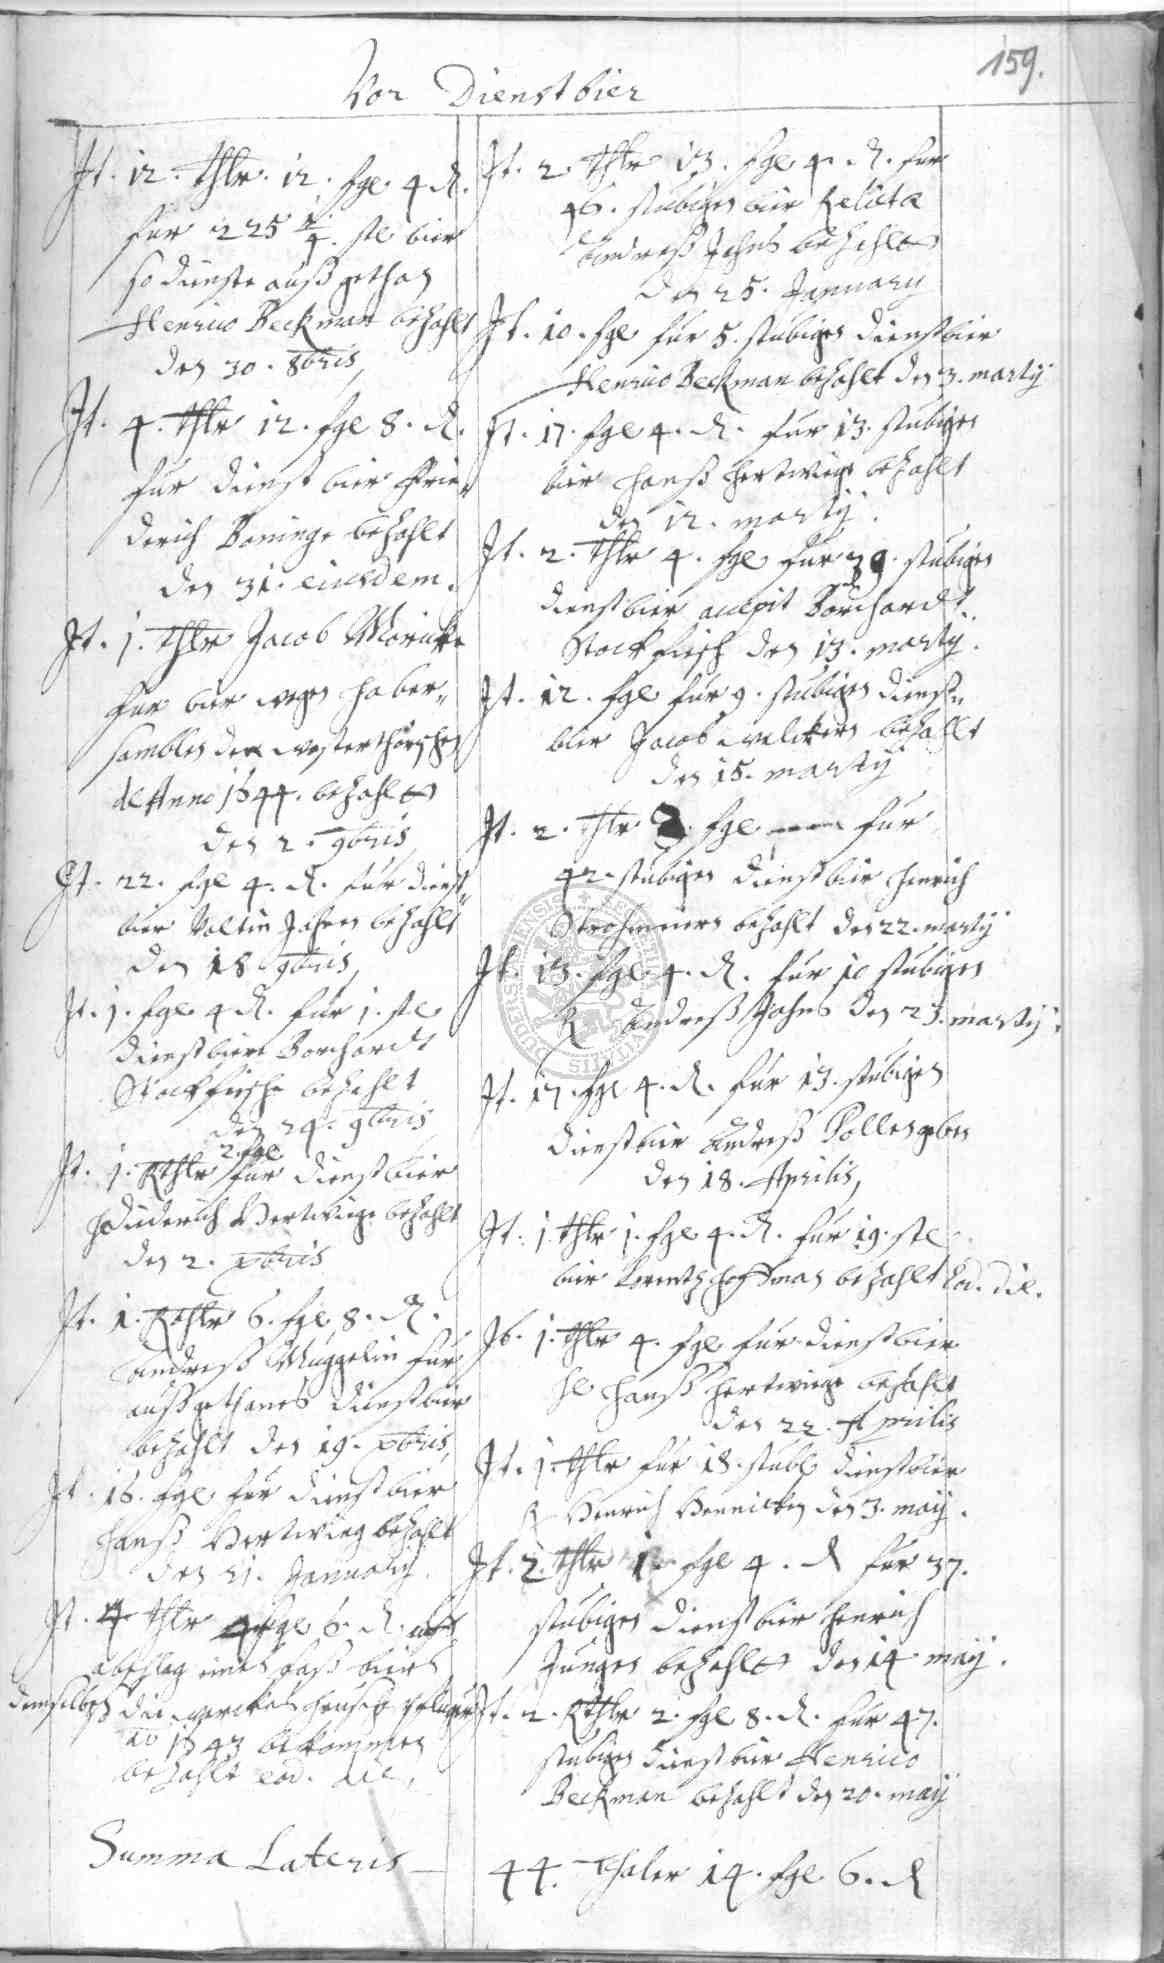 159.
Vor Dienstbier
Jt. 12. thlr. 12. sgl 4 d.
für 225 1/4. stl bier
so dienste auß gethan
Henrico Beckman bezahlt
den 30. 8bris,
Jt. 4. thlr 12. sgl 8. d.
für dienst bier Frie-
derich Boninge bezahlt
den 31. eiusdem.
Jt. 1. thlr Jacob
für bier wegen haber-
samblen der westerthörschen
de Anno 1644. bezahlt
den 2. 9bris
Jt. 22. sgl 4. d. für dienst-
bier Voltin Jahns bezahlt
den 18. 9bris,
Jt. 1. sgl 4 d. für 1. stl
dienstbier Borchardt
Stockfisch bezahlt
den 24. 9bris
2. sgl
Jt. 1. Rthlr für dienstbier
Diderich Hertwige bezahlt
den 2. xbris
Jt. 1. Rthlr 6. sgl 8. d.
Andreß Müggelin für
außgethanes dienstbier
bezahlt den 19. xbris,
Jt. 16. sgl für dienstbier
Hanß Hertwieg bezahlt
den 21. January.
Jt. 4 thlr 4 sgl 6. d. uff
abschlag eines faß bier
demselben die
ao 1643 bekommen
bezahlt eod. die,
Jt. 2. thlr 13. sgl 4. d. für
46. stübigen bier Relicta
Andreß Jahns bezahlt
den 25. January
Jt. 10. sgl für 5. stübigen dienstbier
Henrico Beckman bezahlt den 3. marty
Jt. 17. sgl 4. d. für 13. stübigen
bier Hanß Hertwiege bezahlt
den 12. marty.
Jt. 2. thlr 4. sgl für 39. stübigen
dienstbier accepit Borchardt
Stockfisch den 13. marty.
Jt. 12. sgl für 9. stübigen dienst-
bier Jacob Welckers bezahlt
den 15. marty
Jt. 2. thlr sgl für
42. stübigen dienstbier Henrich
Strohmeiers bezahlt den 22. marty
Jt. 13. sgl 4. d. für 10 stübigen
Andreß Jahns den 23. marty.
Jt. 17. sgl 4. d. für 13. stübigen
dienstbier Andreß Polle geben
den 18. Aprilis,
Jt. 1. thlr 1. sgl 4. d. für 19. stl
bier Lorentz Hoffman bezahlt Eod. die.
Jt. 1. thlr 4. sgl für dienstbier
Hanß Hertwiege bezahlt
den 22. Aprilis
Jt. 1. thlr für 18. stübl dienstbier
Henrich den 3. may.
Jt. 2. thlr 1. sgl 4. d für 37.
stübigen dienstbier Henrich
Junges bezahlt den 14 may.
Jt. 2. Rthlr 2. sgl 8. d. für 47.
stübigen dienstbier Henrico
Beckman bezahlt den 20. may
Summa Lateris — 44. Thaler 14. sgl 6. d